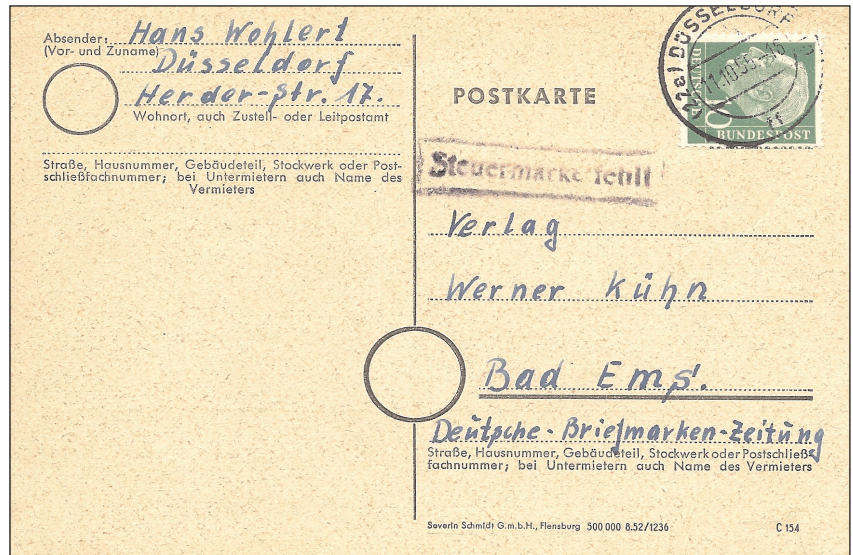 Absender: Hans Wohlert
(Vor- und Zuname)
Düsseldorf
Herder-Str. 17.
Wohnort, auch Zustell- oder Leitpostamt
Straße, Hausnummer, Gebäudeteil, Stockwerk oder Post-
schließfachnummer; bei Untermietern auch Name des
Vermieters
POSTKARTE
(22a) DÜSSELDORF
11.10.55.-16
DEUTSCHE
BUNDESPOST
Steuermarke fehlt
Verlag
Werner Kühn
Bad Ems.
Deutsche-Briefmarken-Zeitung
Straße, Hausnummer, Gebäudeteil, Stockwerk oder Postschließ-
fachnummer; bei Untermietern auch Name des Vermieters
Severin Schmidt G.m.b.H., Flensburg 500 000 8.52/1236
C 154